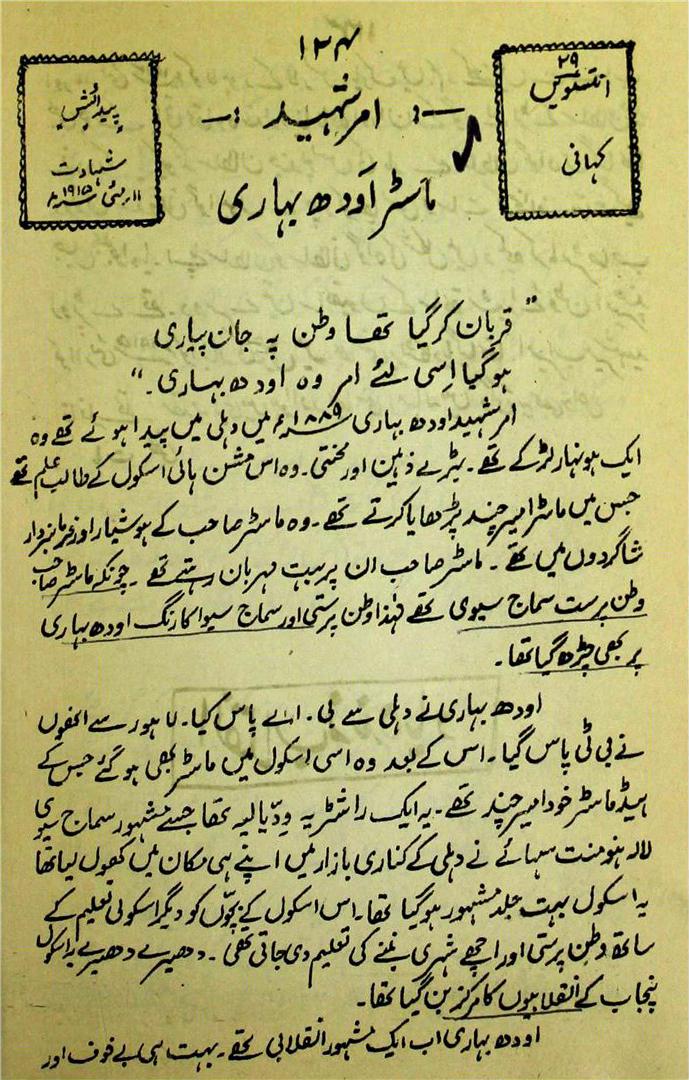 ۱۲۴
۲۹
انتسلویں
کہانی
پیدائش
شہادت
۱۱ر مئی ۱۹۱۵ء
-: امر شہید :-
ماسٹر اَودھ بہاری
"قربان کر گیا تھا وطن پہ جان پیاری
ہو گیا اِسی لئے امر وہ اودھ بہاری۔"
امر شہید اودھ بہاری ۱۸۸۹ء میں دہلی میں پیدا ہوئے تھے وہ
ایک ہونہار لڑکے تھے۔ بڑے ذہین اور محنتی۔ وہ اس مشن ہائی اسکول کے طالب علم تھے
جس میں ماسٹر امیر چند پڑھایا کرتے تھے۔ وہ ماسٹر صاحب کے ہوشیار اور فرمانبردار
شاگردوں میں تھے۔ ماسٹر صاحب ان پر بہت مہربان رہتے تھے۔ چونکہ ماسٹر صاحب
وطن پرست سماج سیوی تھے لہٰذا وطن پرستی اور سماج سیوا کا رنگ اودھ بہاری
پر بھی چڑھ گیا تھا۔
اودھ بہاری نے دہلی سے بی۔ اے پاس کیا۔ لاہور سے انھوں
نے بی ٹی پاس کیا۔ اس کے بعد وہ اسی اسکول میں ماسٹر بھی ہو گئے جس کے
ہیڈ ماسٹر خود امیر چند تھے۔ یہ ایک راشٹریہ وِدّیالیہ تھا جسے مشہور سماج سیوی
لالہ ہنومنت سہائے نے دہلی کے کناری بازار میں اپنے ہی مکان میں کھول لیا تھا
یہ اسکول بہت جلد مشہور ہو گیا تھا۔ اس اسکول کے بچّوں کو دیگر اسکولی تعلیم کے
ساتھ وطن پرستی اور اچھے شہری بننے کی تعلیم دی جاتی تھی۔ دھیرے دھیرے یہ اسکول
پنجاب کے انقلابیوں کا مرکز بن گیا تھا۔
اودھ بہاری اب ایک مشہور انقلابی تھے۔ بہت ہی بے خوف اور